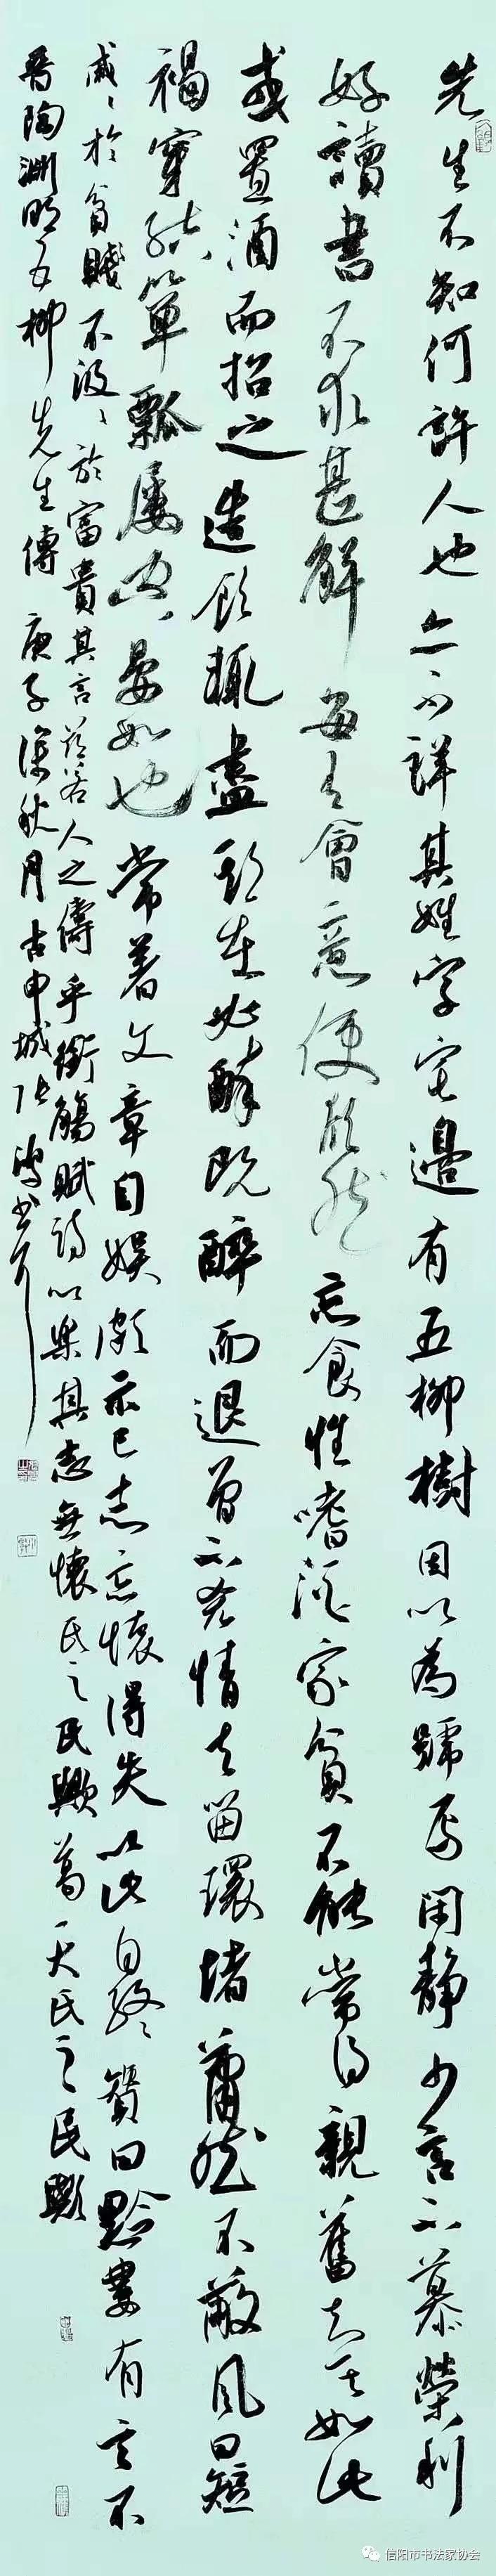 先生不知何許人也亦不詳其姓字宅邊有五柳樹因以為號焉閑靜少言不慕榮利
好讀書不求甚解每有會意便欣然忘食性嗜酒家貧不能常得親舊知其如此
或置酒而招之造飲輒盡期在必醉既醉而退曾不吝情去留環堵蕭然不蔽風日短
褐穿結簞瓢屢空晏如也常著文章自娛頗示己志忘懷得失以此自終贊曰黔婁有言不
戚〻於貧賤不汲〻於富貴其言茲若人之儔乎銜觴賦詩以樂其志無懷氏之民歟葛天氏之民歟
晉陶淵明五柳先生傳 庚子深秋月古申城張
信阳市书法家协会